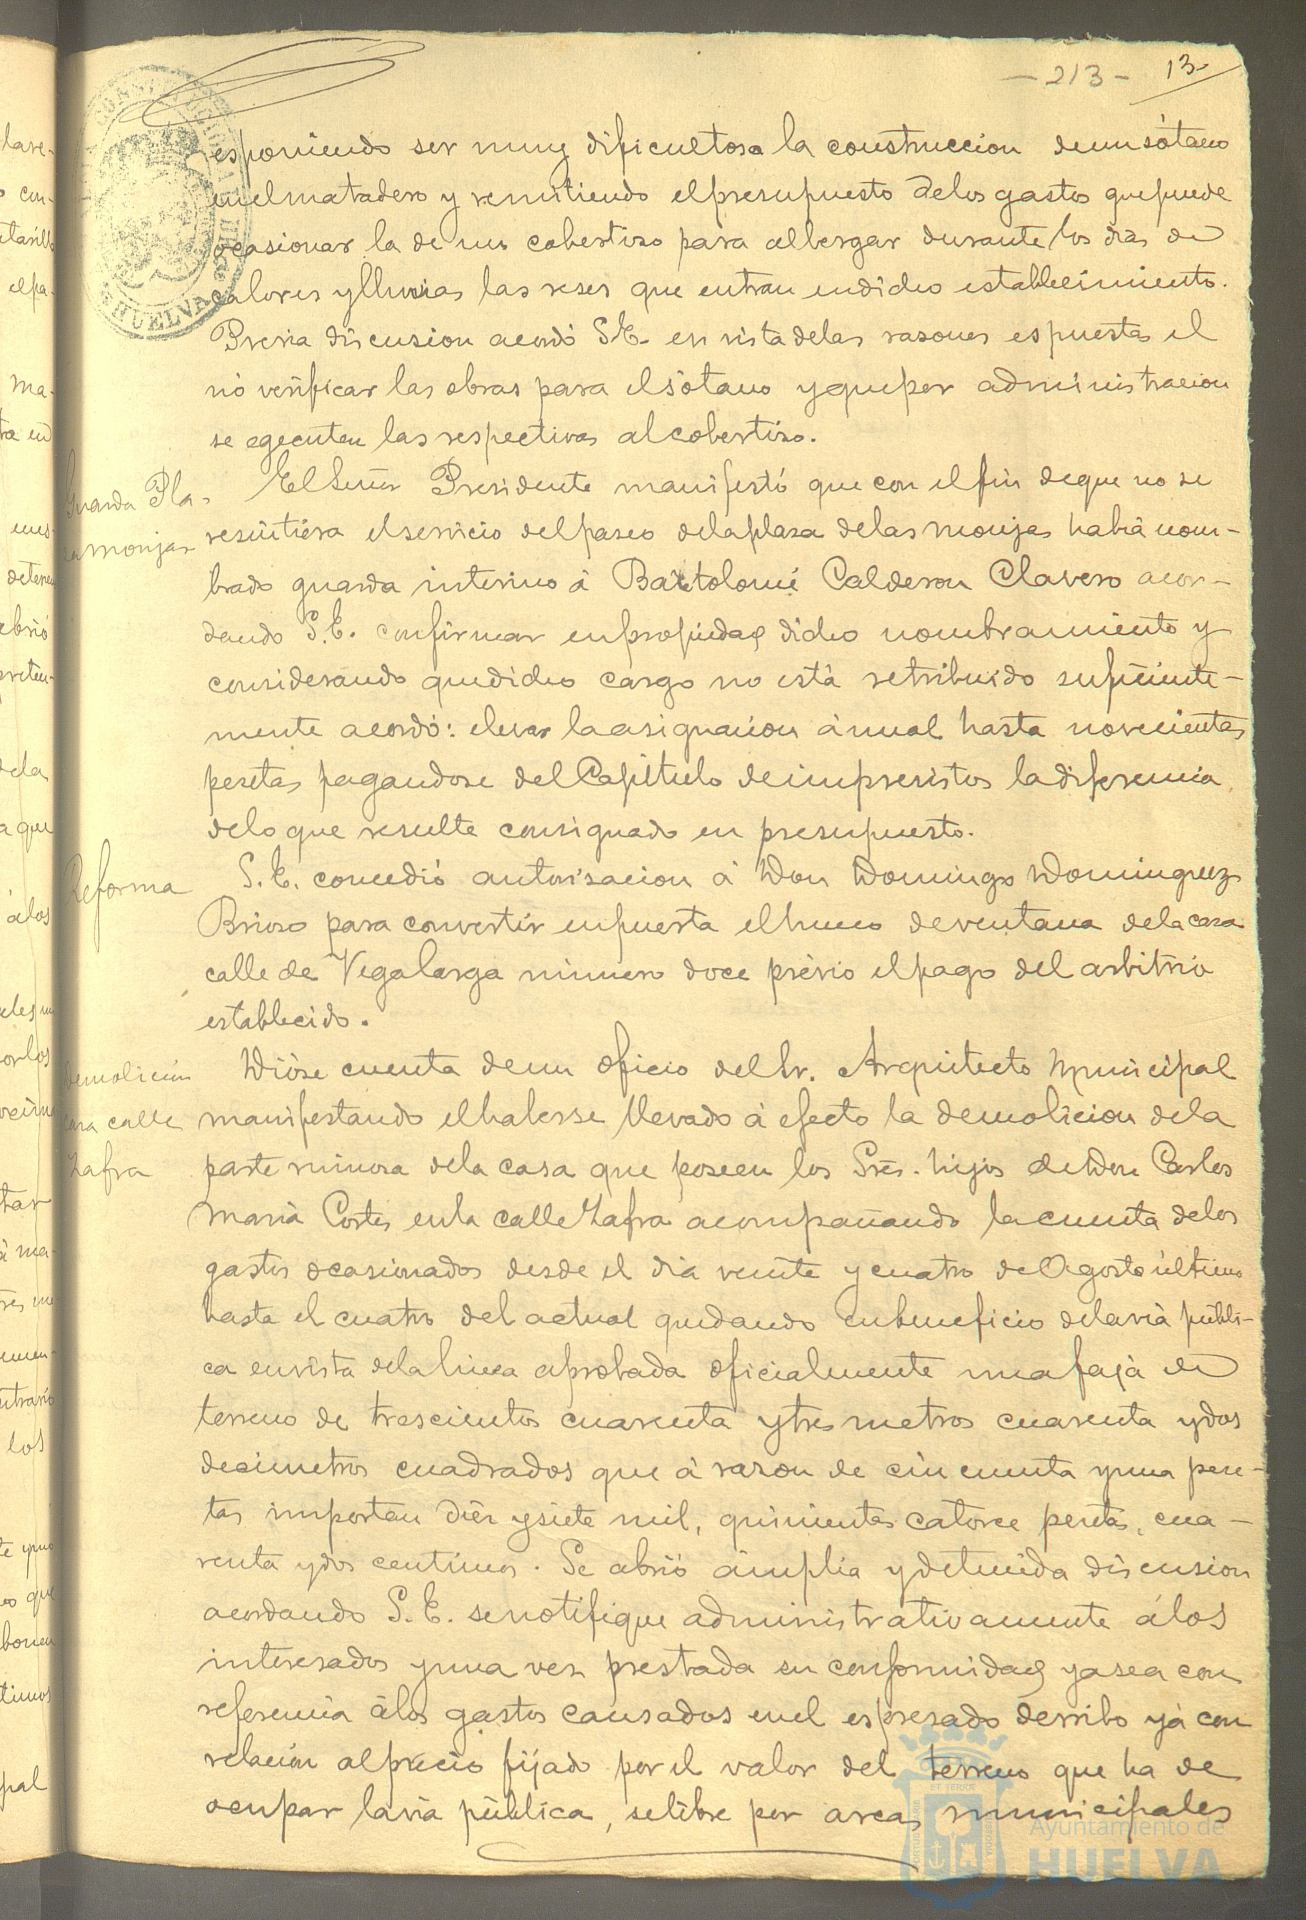 - 213 -  13
esponiendo ser muy dificultosa la construccion de un sótano
en el matadero y remitiendo el presupuesto de los gastos que puede
ocasionar la de un cobertizo para albergar durante los dias de
calores y lluvias las reses que entran en dicho establecimiento.
Previa discusion acordó S.E. en vista de las razones espuestas el
no verificar las obras para el sótano y que por administracion
se egecuten las respectivas al cobertizo.
Guarda Pla-
za Monjas
El Señor Presidente manifestó que con el fin de que no se
resintiera el servicio del paseo de la plaza de las monjas habia nom-
brado guarda interino á Bartolomé Calderon Clavero acor-
dando S.E. confirmar en propiedad dicho nombramiento y
considerando que dicho cargo no está retribuido suficiente-
mente acordó: elevar la asignacion ánual hasta novecientas
pesetas pagandose del Capitulo de imprevistos la diferencia
de lo que resulte consignado en presupuesto.
Reforma
S.E. concedió autorisacion á Don Domingo Dominguez
Brioso para convertir en puerta el hueco de ventana de la casa
calle de Vegalarga número doce previo el pago del arbitrio
establecido.
Demolicion
casa calle
Zafra
Dióse cuenta de un oficio del Sr. Arquitecto Municipal
manifestando el haberse llevado á efecto la demolicion de la
parte ruinosa de la casa que poseen los Sres. hijos de Don Carlos
Maria Cortes en la calle Zafra acompañando la cuenta de los
gastos ocasionados desde el dia veinte y cuatro de Agosto último
hasta el cuatro del actual quedando en beneficio de la via públi-
ca en vista de la linea aprobada oficialmente una faja de
terreno de trescientos cuarenta y tres metros cuarenta y dos
decimetros cuadrados que á razon de cincuenta y una pese-
tas importan diez y siete mil, quinientas catorce pesetas, cua-
renta y dos centimos. Se abrió ámplia y detenida discusion
acordando S.E. se notifique administrativamente á los
interesados y una vez prestada su conformidad ya sea con
referencia á los gastos causados en el espresado derribo ya con
relacion al precio fijado por el valor del terreno que ha de
ocupar la via pública, se libre por arcas municipales
HUELVA
Ayuntamiento de
HUELVA